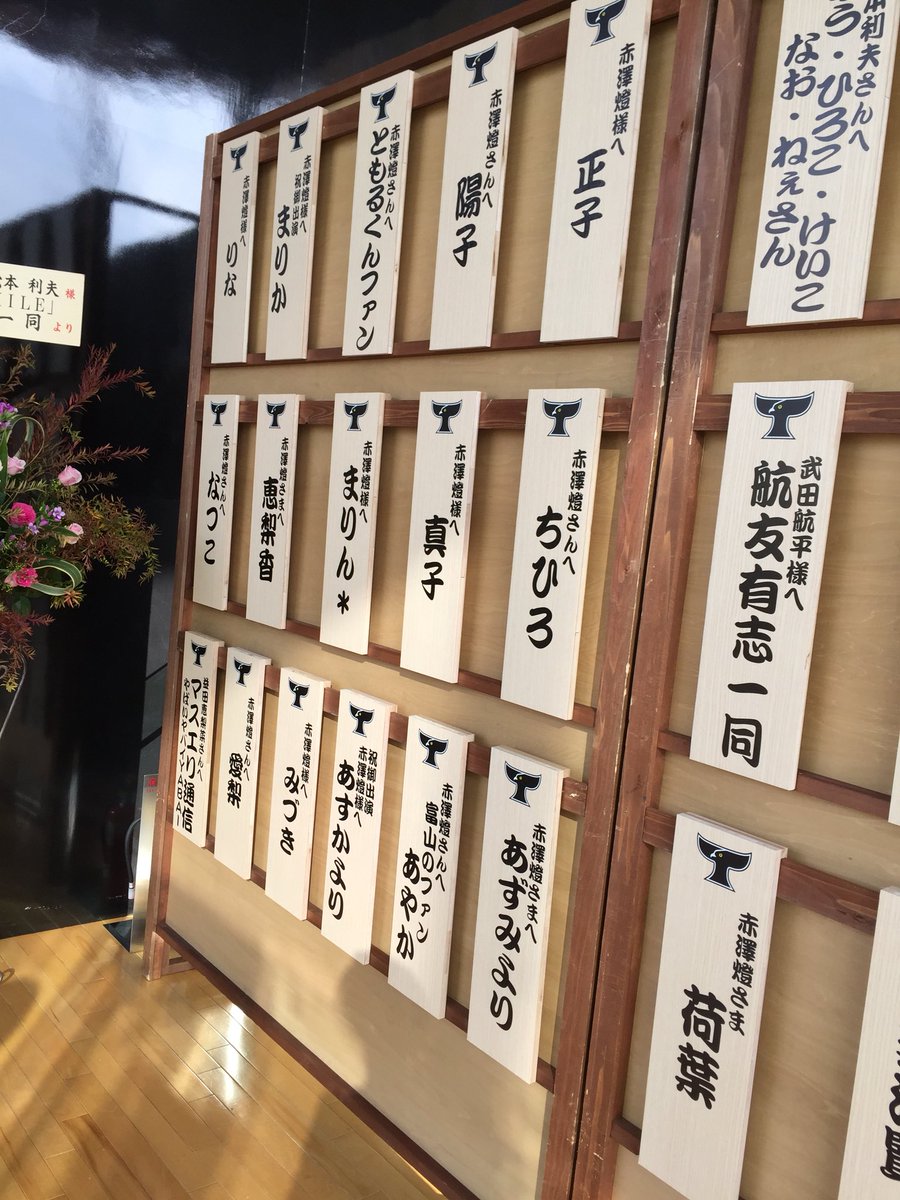 本 利夫 様
ILE」
一同 より
赤澤燈様へ
りな
赤澤燈様へ
祝御出演
まりか
赤澤燈さんへ
ともるくんファン
赤澤燈さんへ
陽子
赤澤燈様へ
正子
本利夫さんへ
う・ひろこ・けいこ
なお・ねぇさん
赤澤燈さんへ
なつこ
赤澤燈さまへ
恵梨香
赤澤燈様へ
まりん*
赤澤燈様へ
真子
赤澤燈さんへ
ちひろ
武田航平様へ
航友有志一同
益田恵梨菜さんへ
マスエリ通信
赤澤燈さんへ
愛梨
赤澤燈様へ
みづき
祝御出演
赤澤燈様へ
あすかより
赤澤燈さんへ
富山のファン
あやか
赤澤燈さまへ
あずみより
赤澤燈さま
荷葉